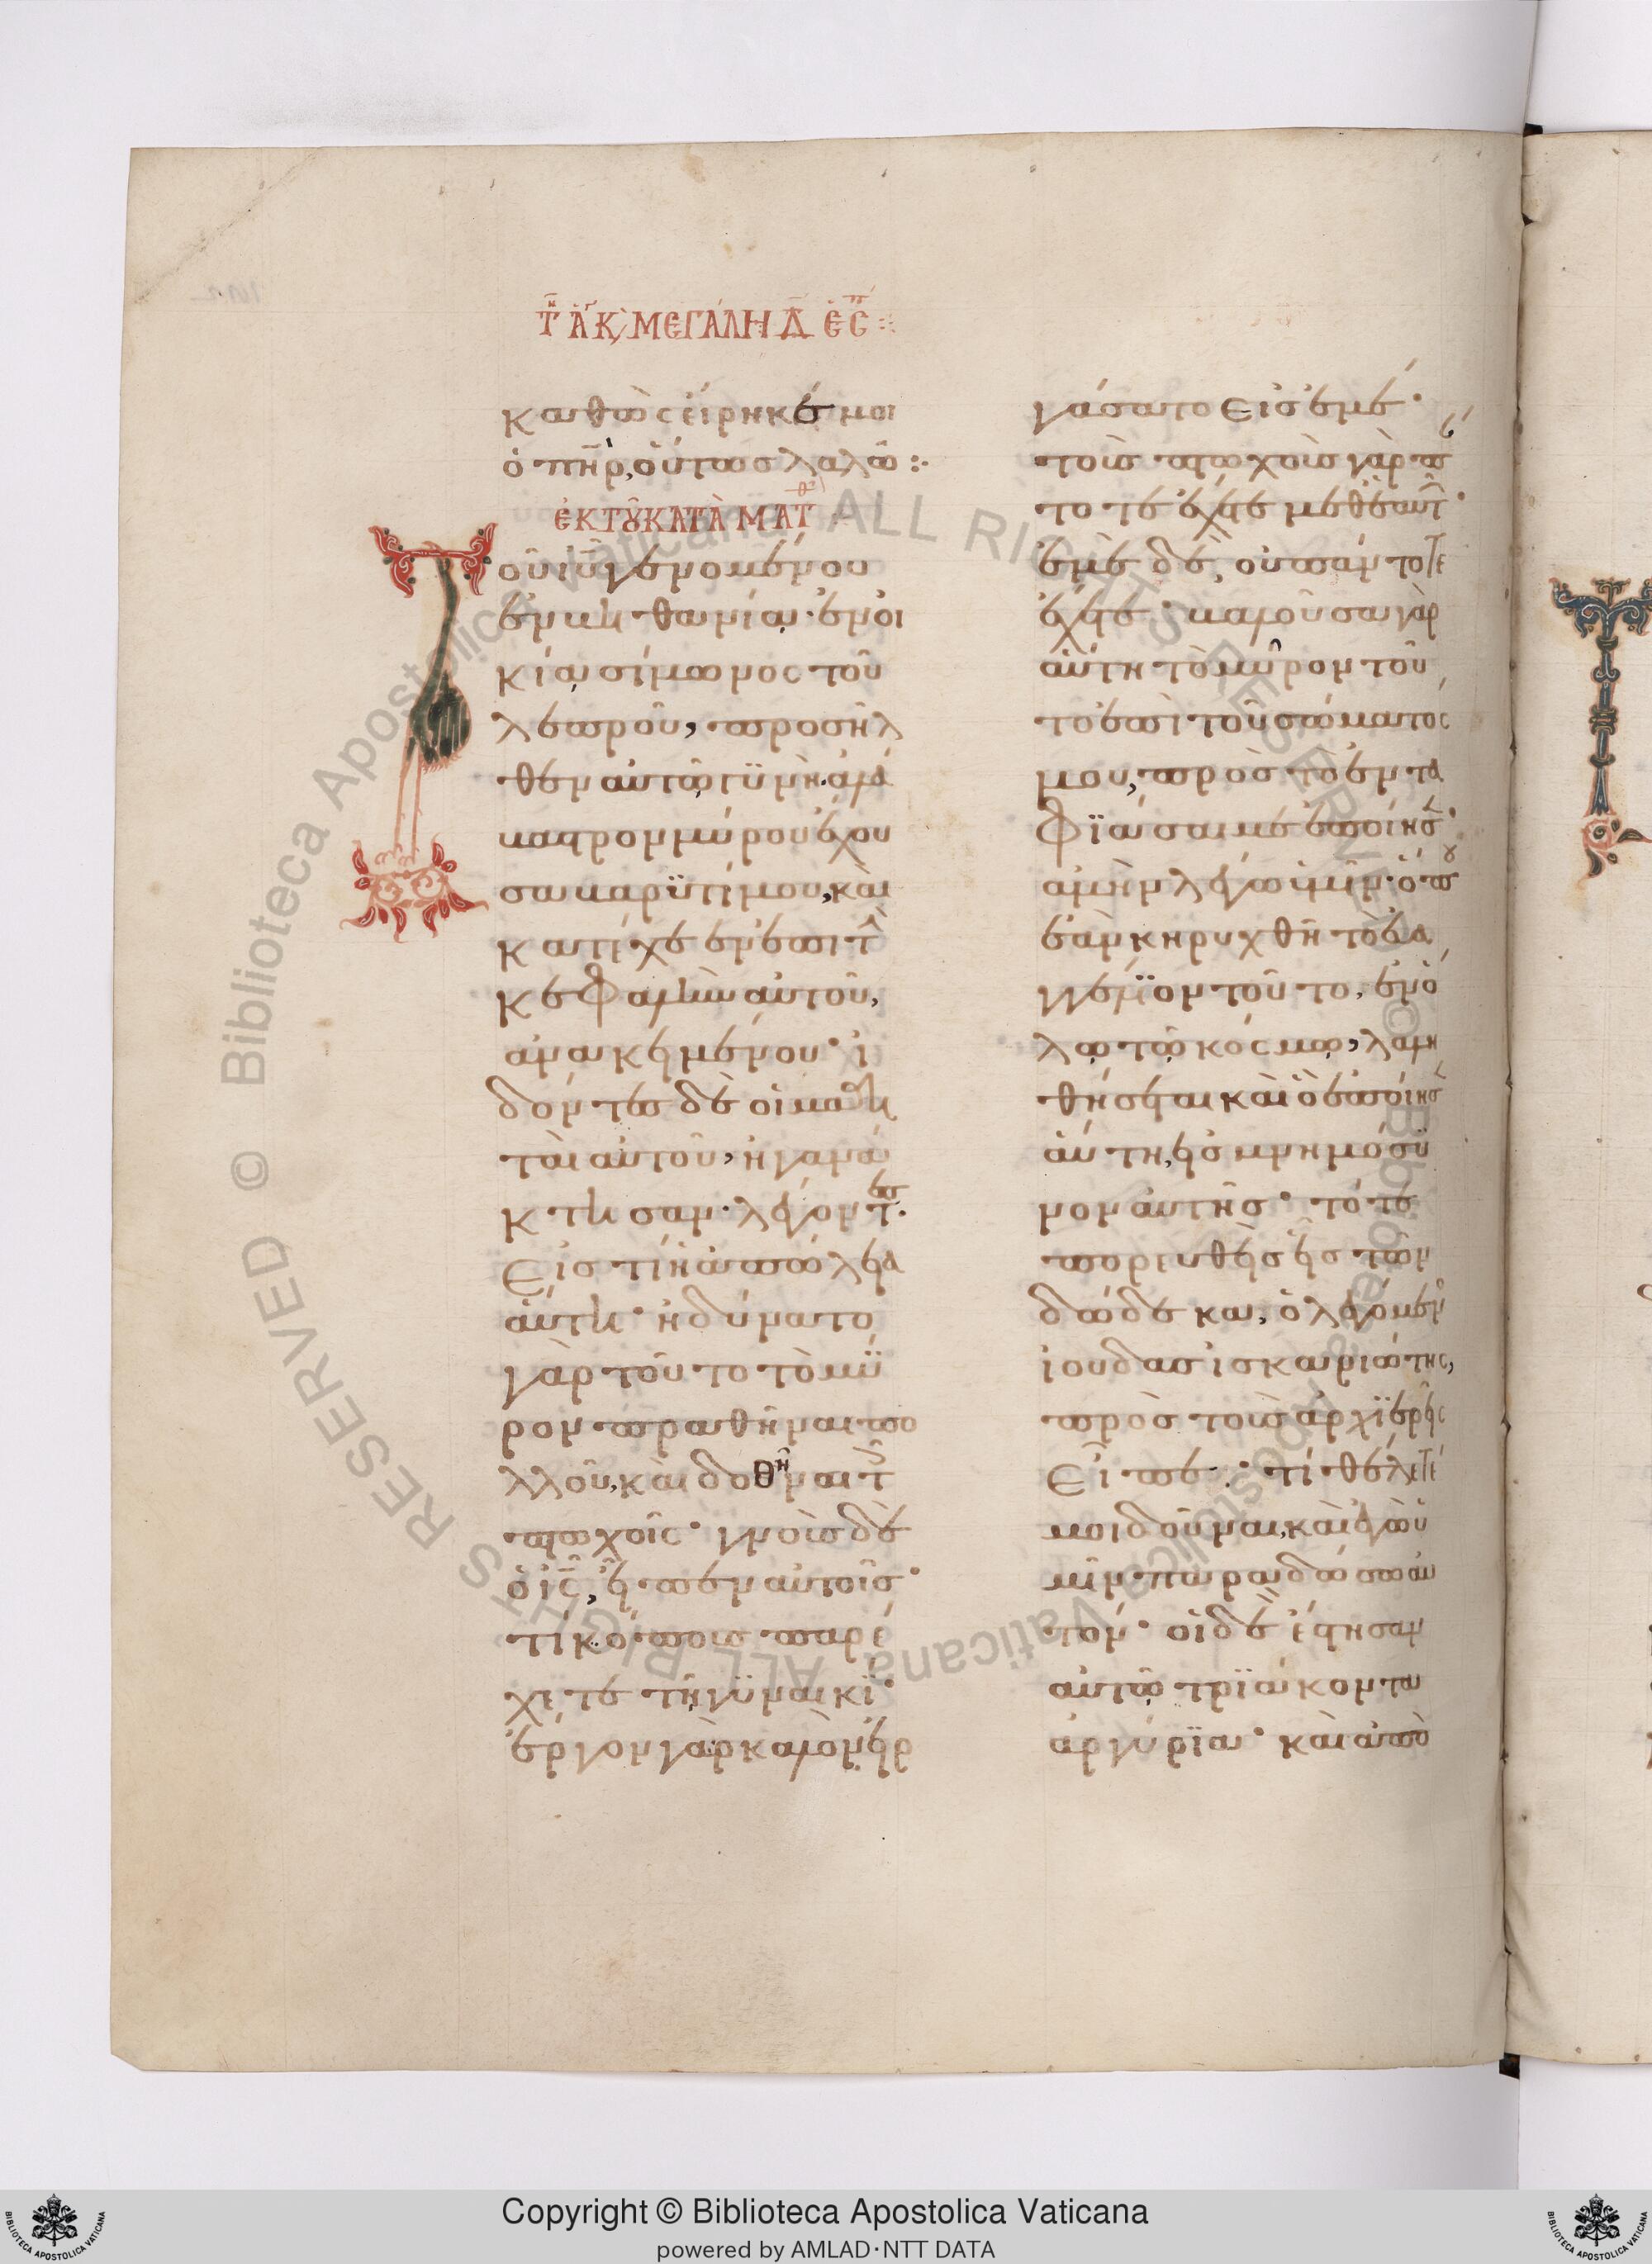 Τῆ ἁγ κ, μεγάλη Δ ἑσπ
καθὼς εἴρηκέ μοι
ὁ πῆρ, οὕτως λαλῶ:
ἐκ τοῦ κατὰ Ματθ
Τοῦ ιῦ γενομένου
ἐν βηθανία· ἐν οἰ
κία σίμωνος τοῦ
λεπροῦ, προσῆλ
θεν αὐτῶ γϋνὴ ἀλά
βαστρον μύρου ἔχου
σα βαρϋτίμου, καὶ
κατέχεεν ἐπὶ τὴ
κεφαλὴν αὐτοῦ,
ἀνακειμένου· ἰ
δόντες δὲ οἱ μαθη
ταὶ αὐτοῦ, ἠγανά
κτησαν· λέγοντες·
Εἰς τί ἡ ἀπώλεια
αὕτη· ἠδύνατο
γὰρ τοῦτο τὸ μύ
ρον πραθῆναι πο
λλοῦ, καὶ δοθῆναι τοῖς
πτωχοῖς· γνοὺς δὲ
ὁ ις, εἶπεν αὐτοῖς·
τί κόπους παρέ
χετε τῆ γϋναικί·
ἔργον γὰρ καλὸν εἰρ
γάσατο Εἰς ἐμέ·
τοὺς πτωχοὺς γὰρ πάν
τοτε ἔχετε μεθ ἑαυτῶν·
ἐμὲ δὲ, οὐ πάντοτε
ἔχετε· βαλοῦσα γὰρ
αὕτη τὸ μῦρον τοῦ
το ἐπὶ τοῦ σώματος
μου, πρὸς τὸ ἐντα
φϊάσαι με ἐποίησεν·
ἀμὴν λέγω ὑμῖν· ὅπου
ἐὰν κηρυχθῆ τὸ εὐα
γγέλϊον τοῦτο, ἐν ὅ
λω τῶ κόσμω, λαλη
θήσεται καὶ ὃ ἐποίησεν
αὕτη, εἰς μνημόσυ
νον αὐτῆς· τότε
πορευθεὶς εἷς τῶν
δώδεκα, ὁ λεγόμενος
ἰούδας ἰσκαριώτης,
πρὸς τοὺς ἀρχϊερεῖς
Εἶπε· τί θέλετέ
μοι δοῦναι, καὶ ἐγὼ ὑ
μῖν παραδώσω αὐ
τόν· οἱ δὲ ἔστησαν
αὐτῶ τρϊάκοντα
ἀργύρϊα· καὶ ἀπὸ
Copyright © Biblioteca Apostolica Vaticana
powered by AMLAD·NTT DATA